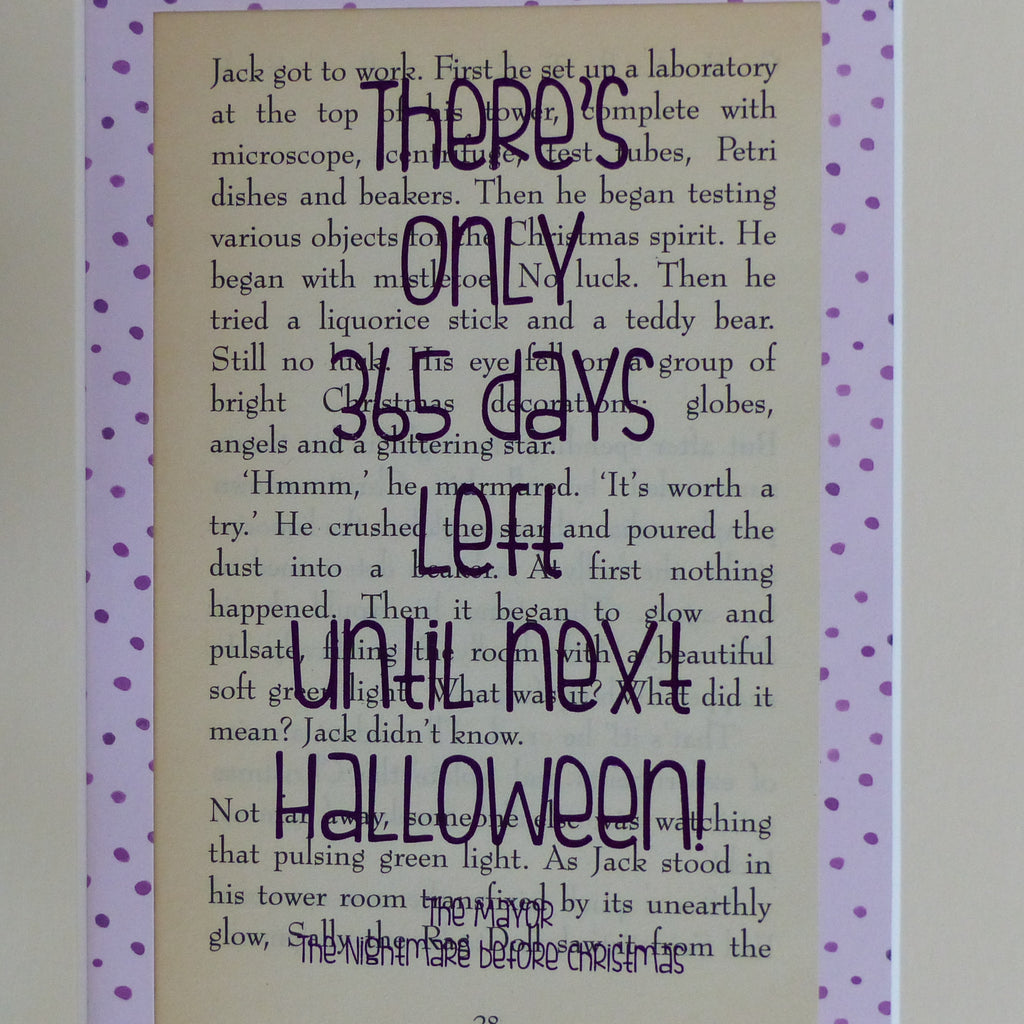 Jack got to work. First he set up a laboratory
at the top of his tower, complete with
microscope, centrifuge, test tubes, Petri
dishes and beakers. Then he began testing
various objects for the Christmas spirit. He
began with mistletoe. No luck. Then he
tried a liquorice stick and a teddy bear.
Still no luck. His eye fell on a group of
bright Christmas decorations: globes,
angels and a glittering star.
‘Hmmm,’ he murmured. ‘It’s worth a
try.’ He crushed the star and poured the
dust into a beaker. At first nothing
happened. Then it began to glow and
pulsate, filling the room with a beautiful
soft green light. What was it? What did it
mean? Jack didn’t know.
Not far away, someone else was watching
that pulsing green light. As Jack stood in
his tower room transfixed by its unearthly
glow, Sally the Rag Doll saw it from the
28
There's
only
365 days
left
until next
Halloween!
The Mayor
The Nightmare before Christmas